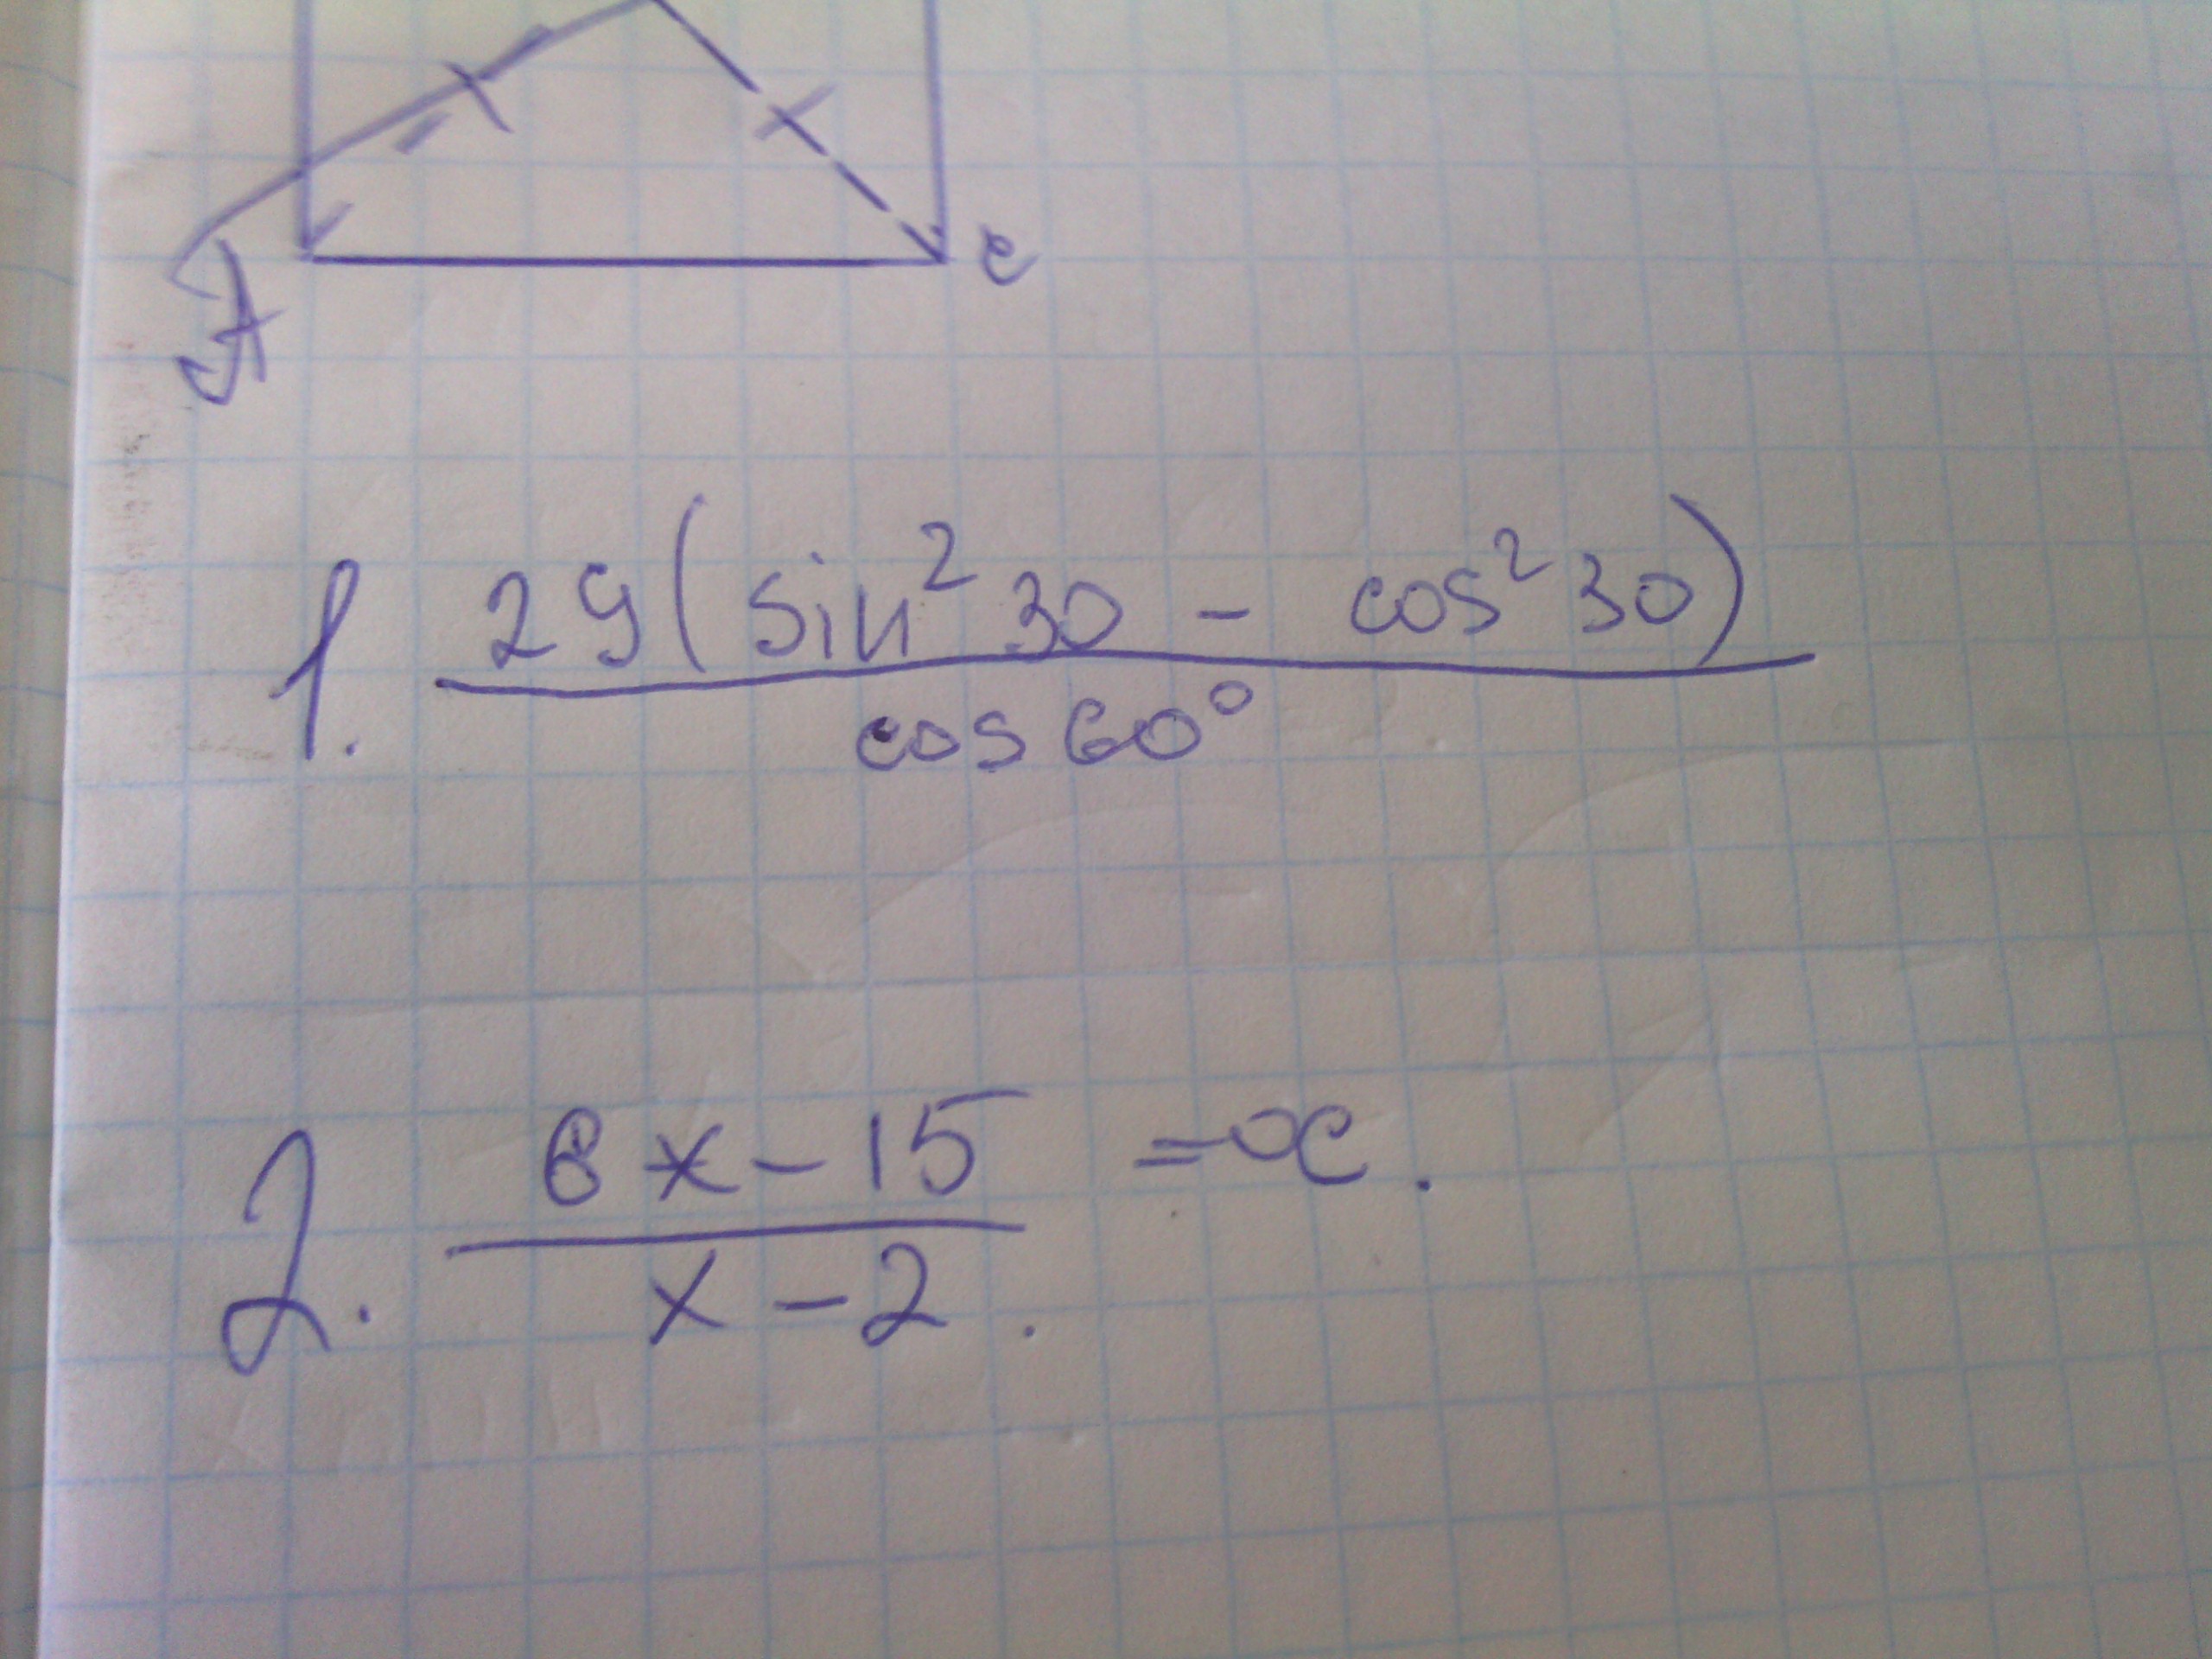 A
c
1. 29(sin² 30 - cos² 30)
cos 60°
2. 6x-15 = x.
x-2.